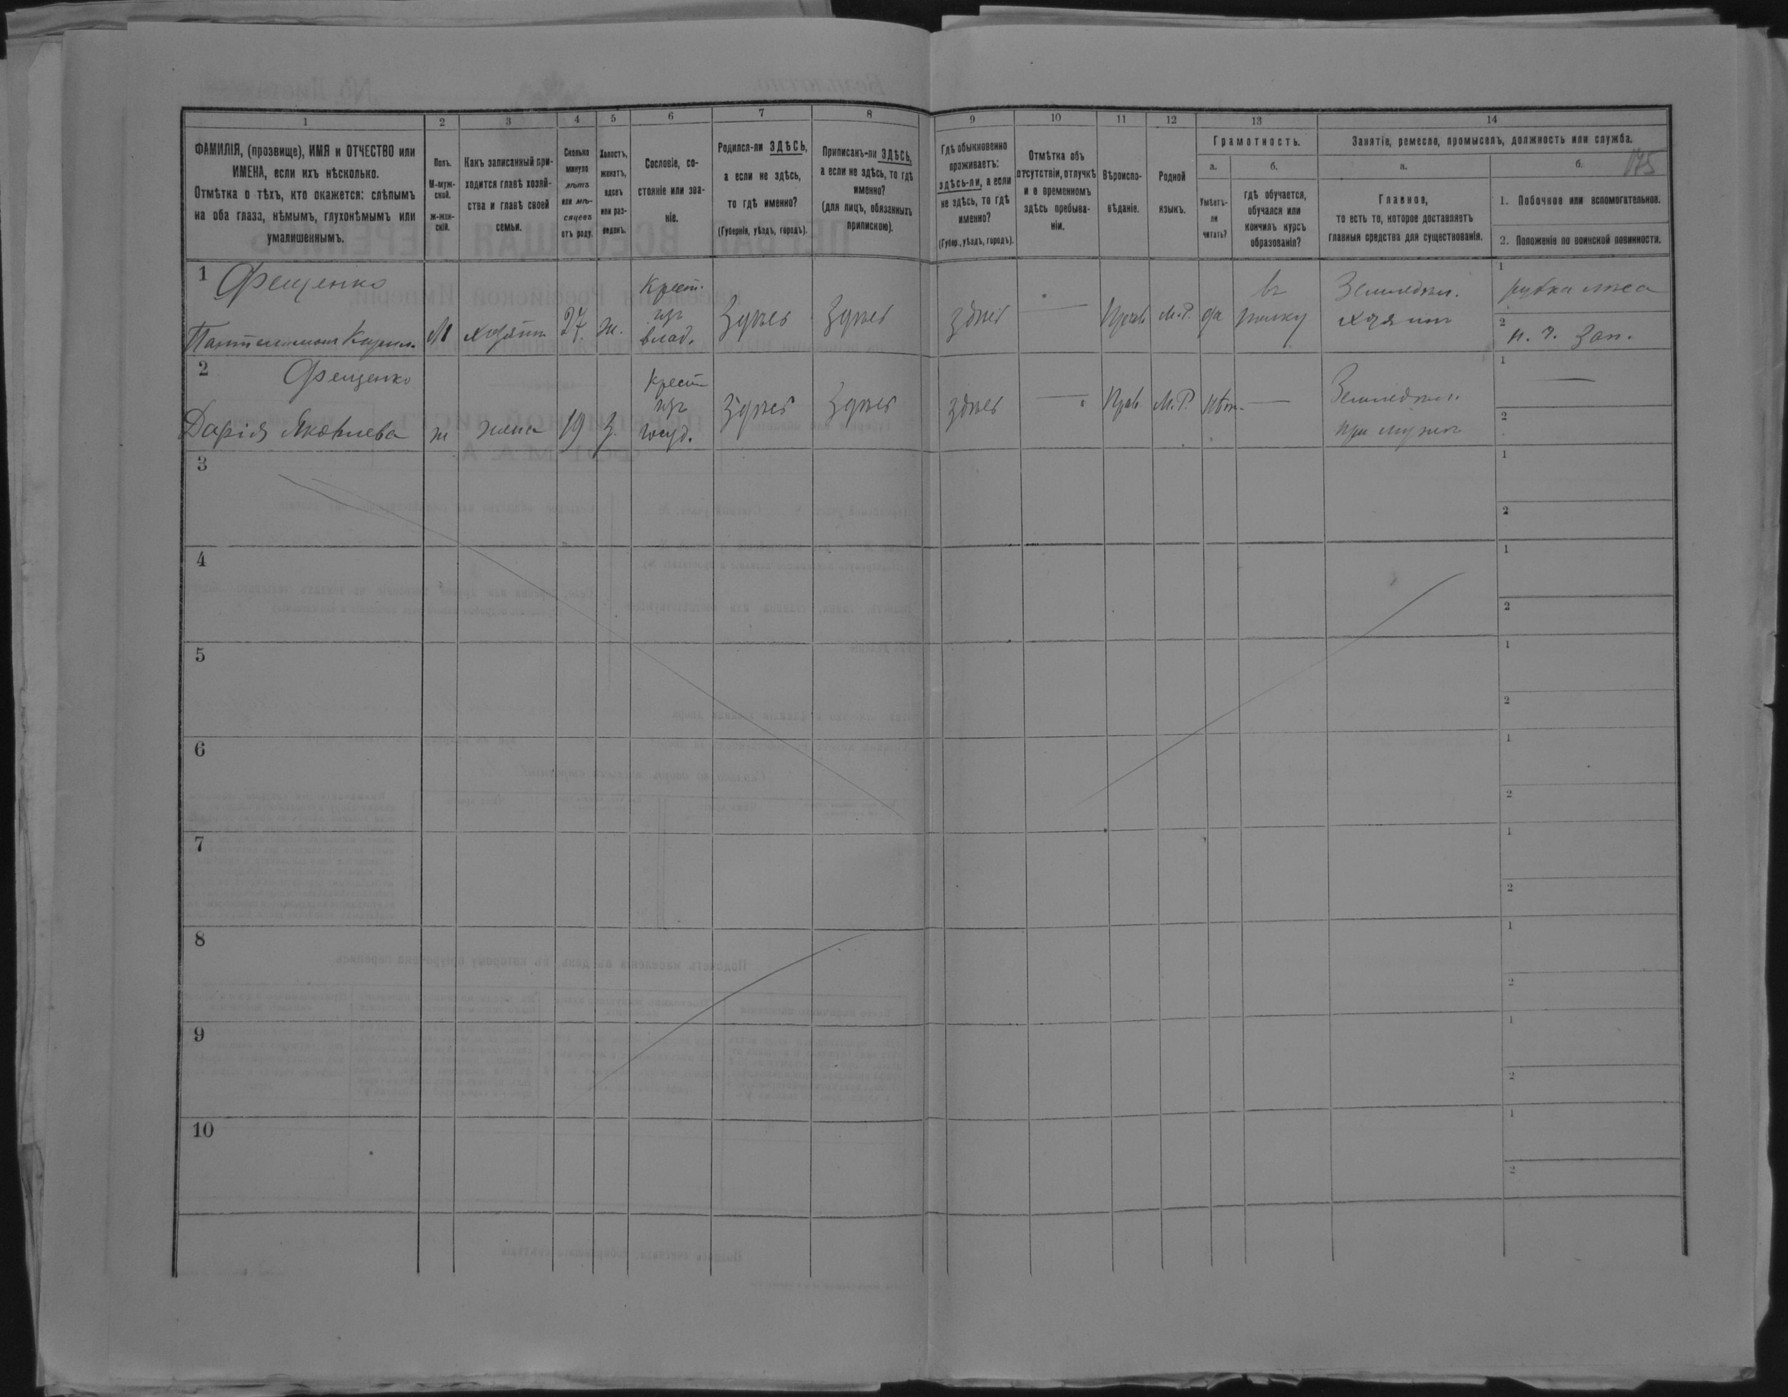 1 2 3 4 5 6 7 8 9 10 11 12 13 14
ФАМИЛІЯ, (прозвище), ИМЯ и ОТЧЕСТВО или
ИМЕНА, если ихъ нѣсколько.
Отмѣтка о тѣхъ, кто окажется: слѣпымъ
на оба глаза, нѣмымъ, глухонѣмымъ или
умалишеннымъ.
Полъ.
М-муж-
ской.
ж-жен-
скій.
Какъ записанный при-
ходится главѣ хозяй-
ства и главѣ своей
семьи.
Сколько
минуло
лѣтъ
или мѣ-
сяцевъ
отъ роду.
Холостъ,
женатъ,
вдовъ
или раз-
веденъ.
Сословіе, со-
стояніе или зва-
ніе.
Родился-ли ЗДѢСЬ,
а если не здѣсь,
то гдѣ именно?
(Губернія, уѣздъ, городъ).
Приписанъ-ли ЗДѢСЬ,
а если не здѣсь, то гдѣ
именно?
(для лицъ, обязанныхъ
припискою).
Гдѣ обыкновенно
проживаетъ:
здѣсь-ли, а если
не здѣсь, то гдѣ
именно?
(Губер., уѣздъ, городъ).
Отмѣтка объ
отсутствіи, отлучкѣ
и о временномъ
здѣсь пребыва-
ніи.
Вѣроиспо-
вѣданіе.
Родной
языкъ.
Грамотность.
а. б.
Умѣетъ-
ли
читать?
гдѣ обучается,
обучался или
кончилъ курсъ
образованія?
Занятіе, ремесло, промыселъ, должность или служба.
а. б. 175
Главное,
то есть то, которое доставляетъ
главныя средства для существованія.
1. Побочное или вспомогательное.
2. Положеніе по воинской повинности.
1 Фещенко Крест. въ Земледѣл. 1 рубка лѣса
изъ
Пантелеимонъ М хозяинъ 27 ж. влад. Здѣсь Здѣсь здѣсь — Прав. М.Р. да хозяинъ 2 н. ч. зап.
2 Фещенко Крест Земледѣл. 1 —
изъ
Дарія Яковлева ж жена 19 з. госуд. Здѣсь Здѣсь здѣсь — Прав. М.Р. нѣт. — при мужѣ 2
3 1
2
4 1
2
5 1
2
6 1
2
7 1
2
8 1
2
9 1
2
10 1
2